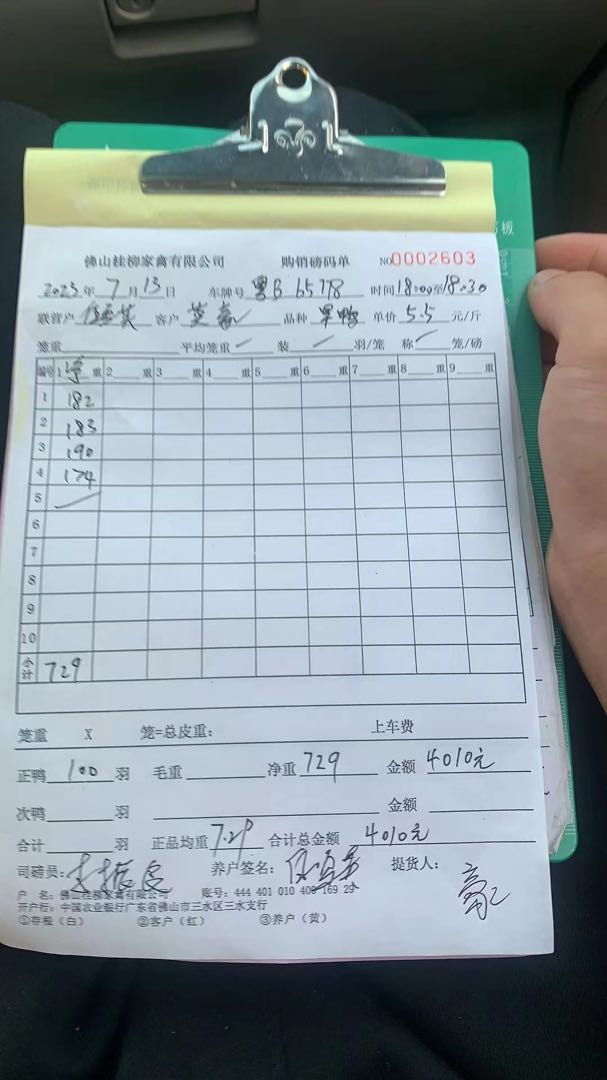 佛山桂柳家禽有限公司 购销磅码单 NO0002603
2023年7月13日 车牌号粤B 65778 时间18:00至18:30
联营户 客户莫豪 品种旱鸭 单价5.5元/斤
笼重 平均笼重 装 羽/笼 称 笼/磅
编号 1 净重 2 重 3 重 4 重 5 重 6 重 7 重 8 重 9 重
1 182
2 183
3 190
4 174
5
6
7
8
9
10
合计 729
笼重 X 笼=总皮重: 上车费
正鸭100羽 毛重 净重729 金额4010元
次鸭 羽 金额
合计 羽 正品均重7.29 合计总金额4010元
司磅员: 养户签名: 提货人: 豪
户 名: 佛山桂柳家禽有限公司 账号: 444 401 010 400 169 29
开户行: 中国农业银行广东省佛山市三水区三水支行
①存根(白) ②客户(红) ③养户(黄)